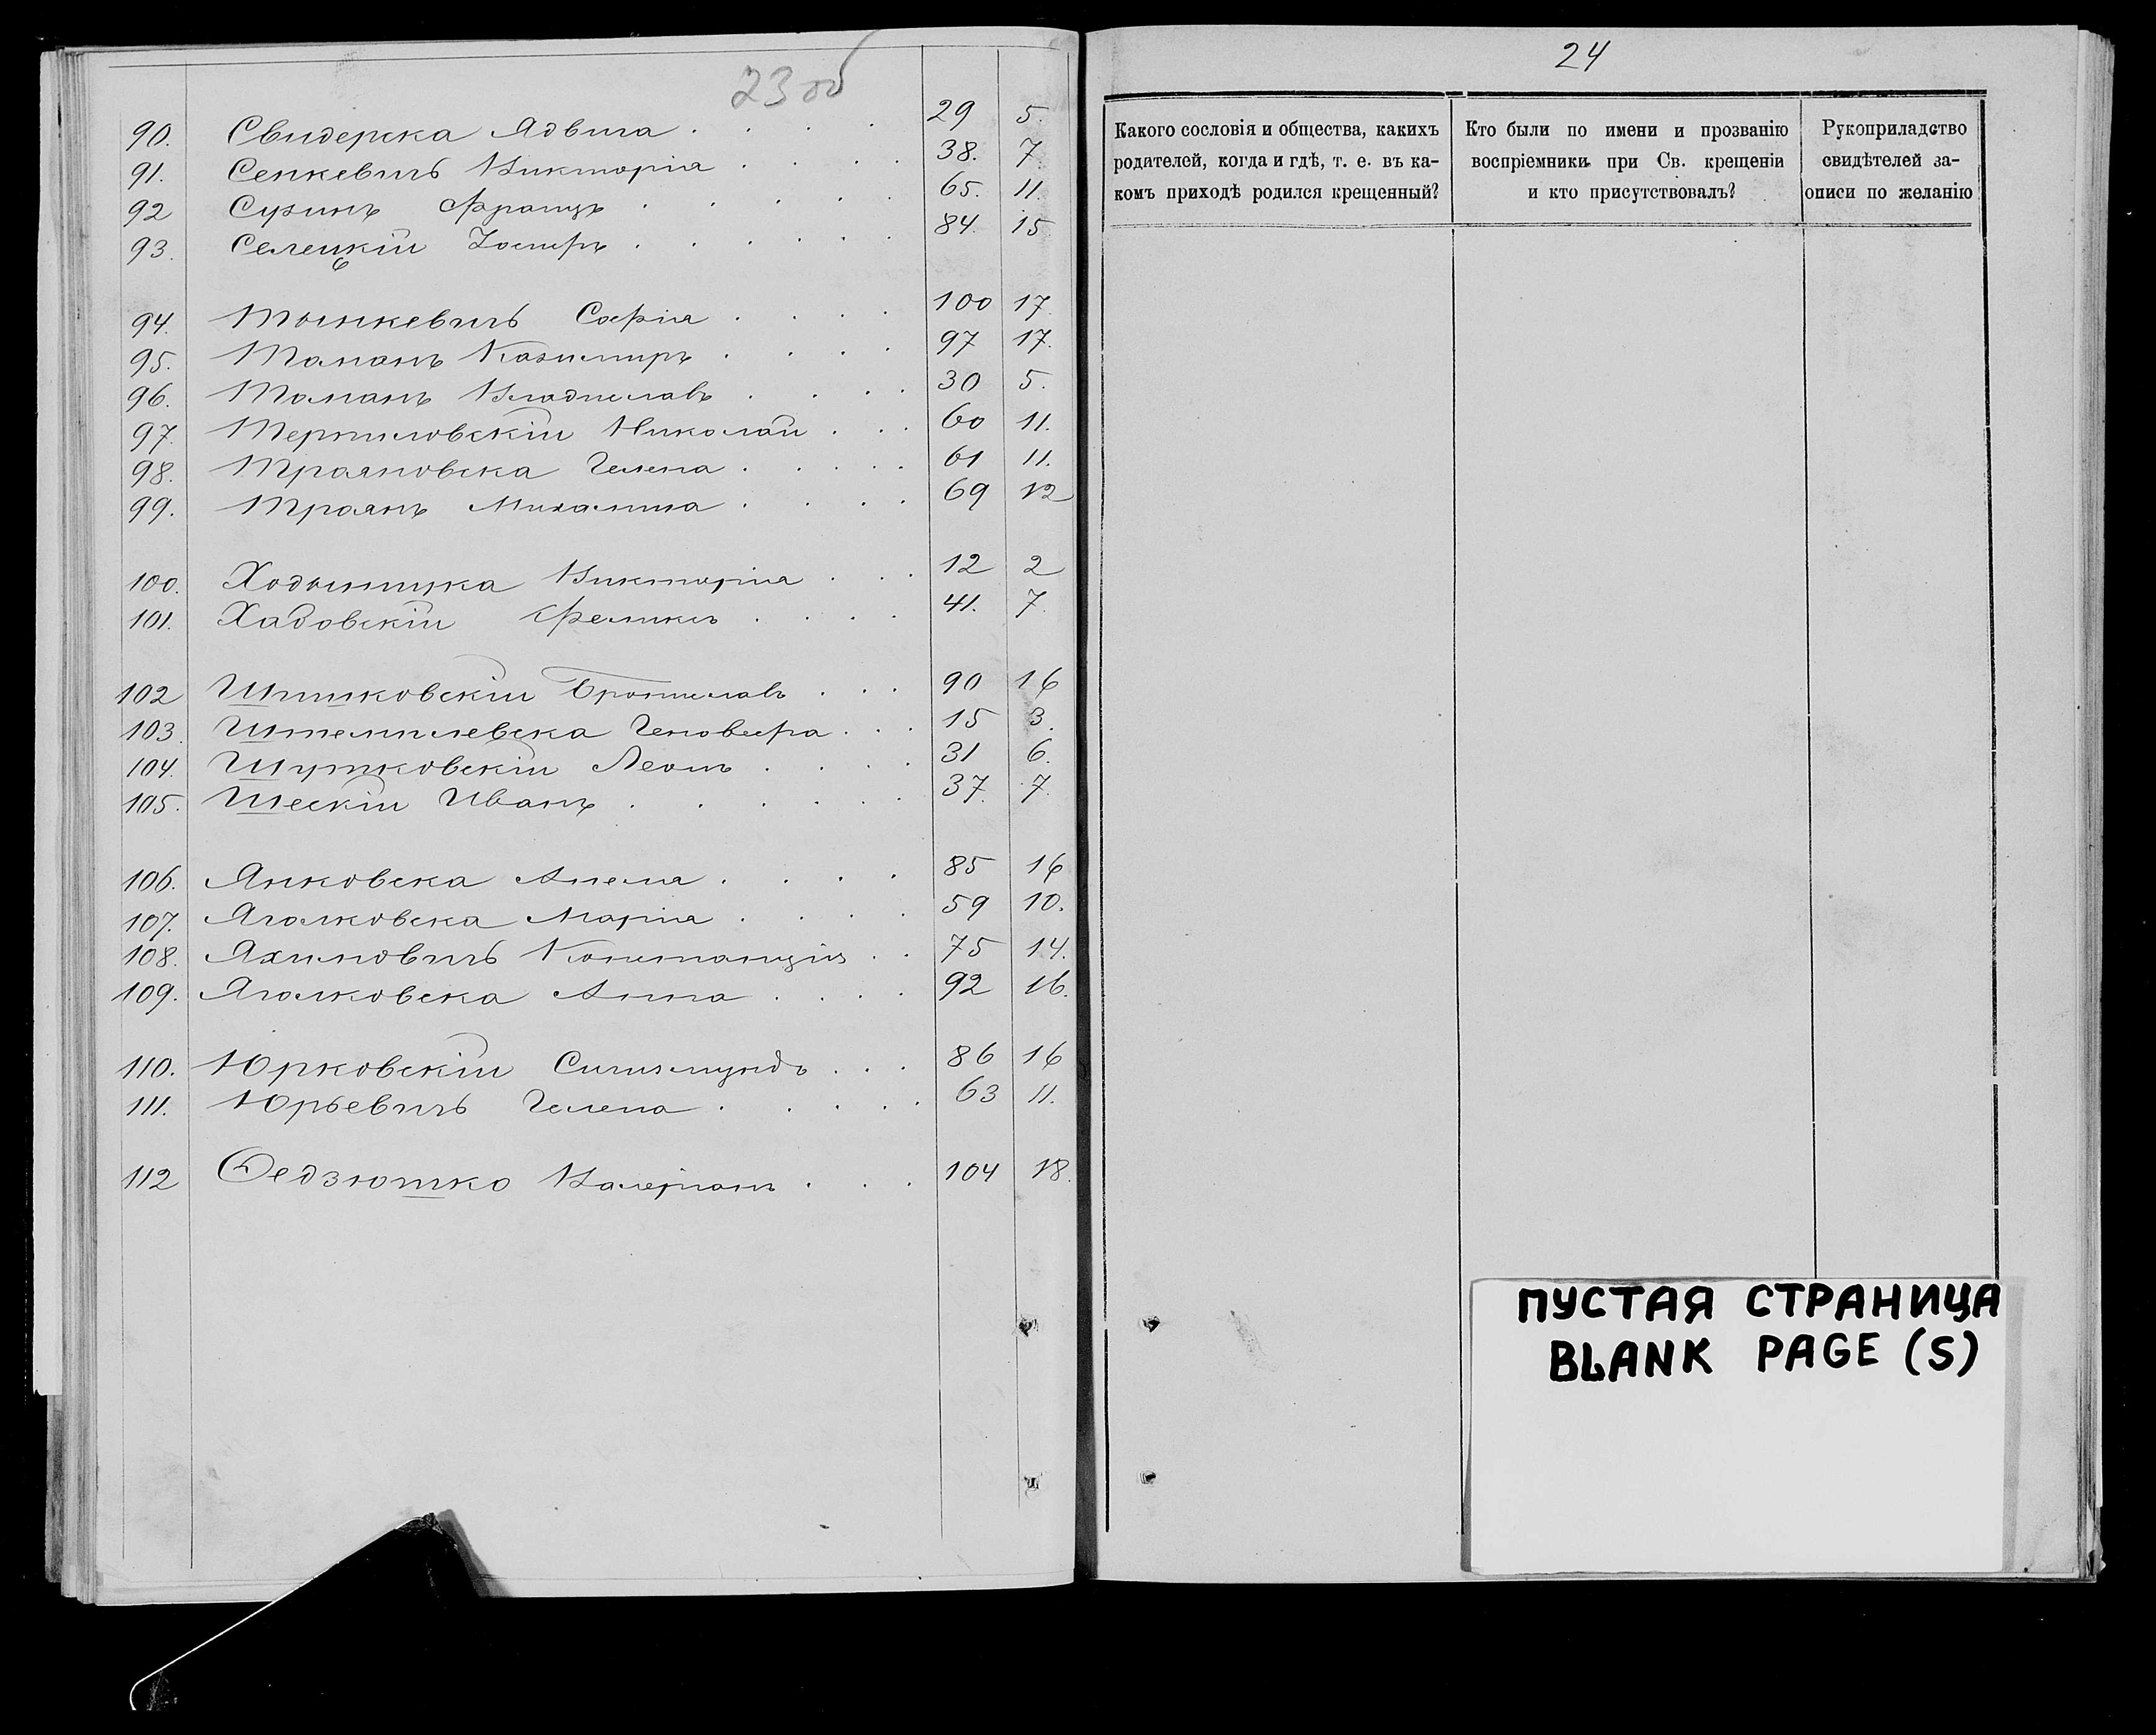 23 об
90. Свидерска Ядвига . . . . 29 5.
91. Сенкевичъ Викторія . . . . 38. 7
92 Сузинъ Францъ . . . . . 65. 11.
93. Селецкій Іосифъ . . . . . . 84. 15
94. Тошкевичъ Софія . . . . 100 17.
95. Томанъ Казимиръ . . . . 97 17.
96. Томанъ Владиславъ . . . . 30 5.
97. Терпиловскій Николай . . . 60 11.
98. Трояновска Гелена . . . . . 61 11.
99. Троянъ Михалина . . . . 69 12
100. Викторія . . . 12 2
101. Хадовскій Феликсъ . . . . 41. 7.
102 Шишковскій Брониславъ . . . 90 16
103. Штемплевска Геновефа . . . 15 3.
104. Шутковскій Леонъ . . . . 31 6.
105. Шескій Иванъ . . . . . . 37. 7.
106. Янковска Анеля . . . . 85 16
107. Яголковска Марія . . . . 59 10.
108. Яхимовичъ Констанція . . 75 14.
109. Яголковска Анна . . . . 92 16.
110. Юрковскій Сигизмундъ . . . 86 16
111. Юрьевичъ Гелена . . . . . 63 11.
112 Ѳедзюшко Валеріанъ . . . 104 18.
24
Какого сословія и общества, какихъ
родателей, когда и гдѣ, т. е. въ ка-
комъ приходѣ родился крещенный?
Кто были по имени и прозванію
воспріемники при Св. крещеніи
и кто присутствовалъ?
Рукоприладство
свидѣтелей за-
описи по желанію
ПУСТАЯ СТРАНИЦА
BLANK PAGE (S)